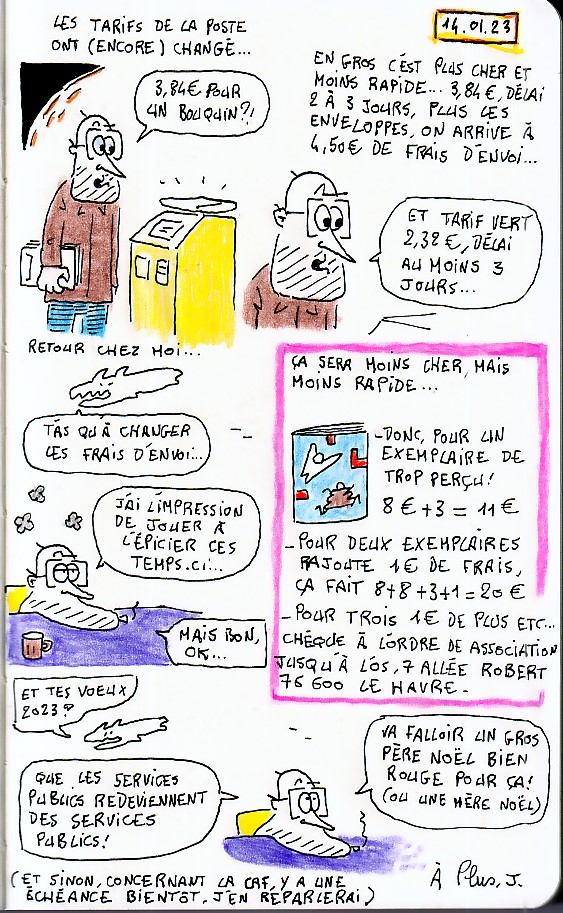 LES TARIFS DE LA POSTE
ONT (ENCORE) CHANGÉ...
14.01.23
3,84€ POUR
UN BOUQUIN?!
EN GROS C'EST PLUS CHER ET
MOINS RAPIDE... 3,84€, DÉLAI
2 À 3 JOURS, PLUS LES
ENVELOPPES, ON ARRIVE À
4,50€ DE FRAIS D'ENVOI...
ET TARIF VERT
2,32€, DÉLAI
AU MOINS 3
JOURS...
RETOUR CHEZ MOI...
T'AS QU'À CHANGER
LES FRAIS D'ENVOI...
J'AI L'IMPRESSION
DE JOUER À
L'ÉPICIER CES
TEMPS.CI...
MAIS BON,
OK...
ÇA SERA MOINS CHER, MAIS
MOINS RAPIDE...
-DONC, POUR UN
EXEMPLAIRE DE
TROP PERÇU!
8€+3=11€
-POUR DEUX EXEMPLAIRES
RAJOUTE 1€ DE FRAIS,
ÇA FAIT 8+8+3+1=20€
-POUR TROIS 1€ DE PLUS ETC...
CHÈQUE À L'ORDRE DE ASSOCIATION
JUSQU'À L'OS, 7 ALLÉE ROBERT
76600 LE HAVRE-
ET TES VOEUX
2023?
QUE LES SERVICES
PUBLICS REDEVIENNENT
DES SERVICES
PUBLICS!
VA FALLOIR UN GROS
PÈRE NOËL BIEN
ROUGE POUR ÇA!
(OU UNE MÈRE NOËL)
(ET SINON, CONCERNANT LA CAF, Y A UNE
ÉCHÉANCE BIENTÔT, J'EN REPARLERAI)
À Plus, J.